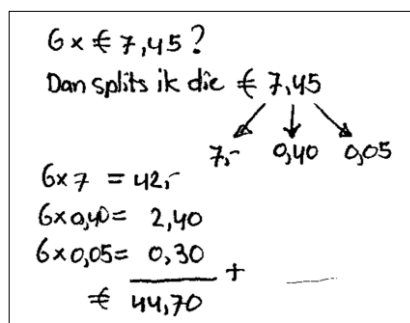 6 x € 7,45?
Dan splits ik die € 7,45
7,- 0,40 0,05
6x7 = 42,-
6x0,40= 2,40
6x0,05= 0,30
+
€ 44,70